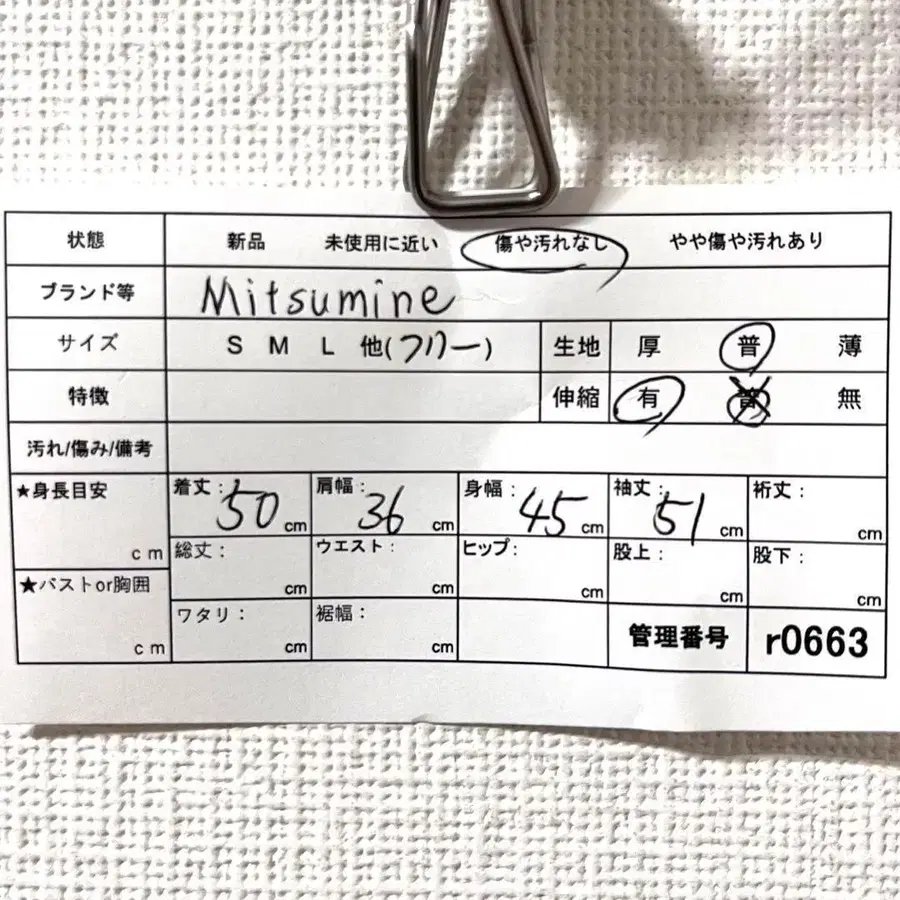 状態 新品 未使用に近い 傷や汚れなし やや傷や汚れあり
ブランド等 Mitsumine
サイズ S M L 他(フリー) 生地 厚 普 薄
特徴 伸縮 有 普 無
汚れ/傷み/備考
★身長目安 cm 着丈: 50 cm 肩幅: 36 cm 身幅: 45 cm 袖丈: 51 cm 裄丈: cm
総丈: cm ウエスト: cm ヒップ: cm 股上: cm 股下: cm
★バストor胸囲 cm ワタリ: cm 裾幅: cm 管理番号 r0663